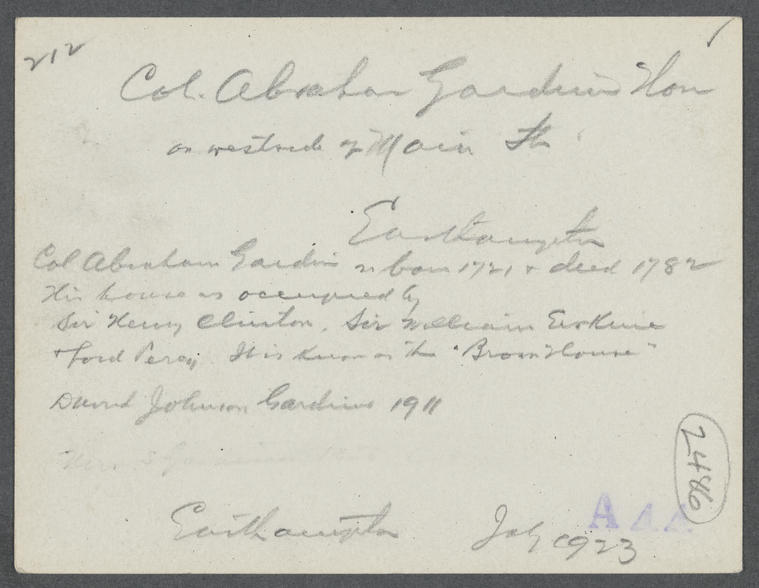 212
Col. Abraham Gardiner Hou
on westside of Main St
Easthampton
Col Abraham Gardiner born 1721 & died 1782
His house was occupied by
Sir Henry Clinton, Sir William Erskine
& Lord Percy. It is known as the "Brown House"
David Johnson Gardiner 1911
Easthampton July 1923
A44
2486